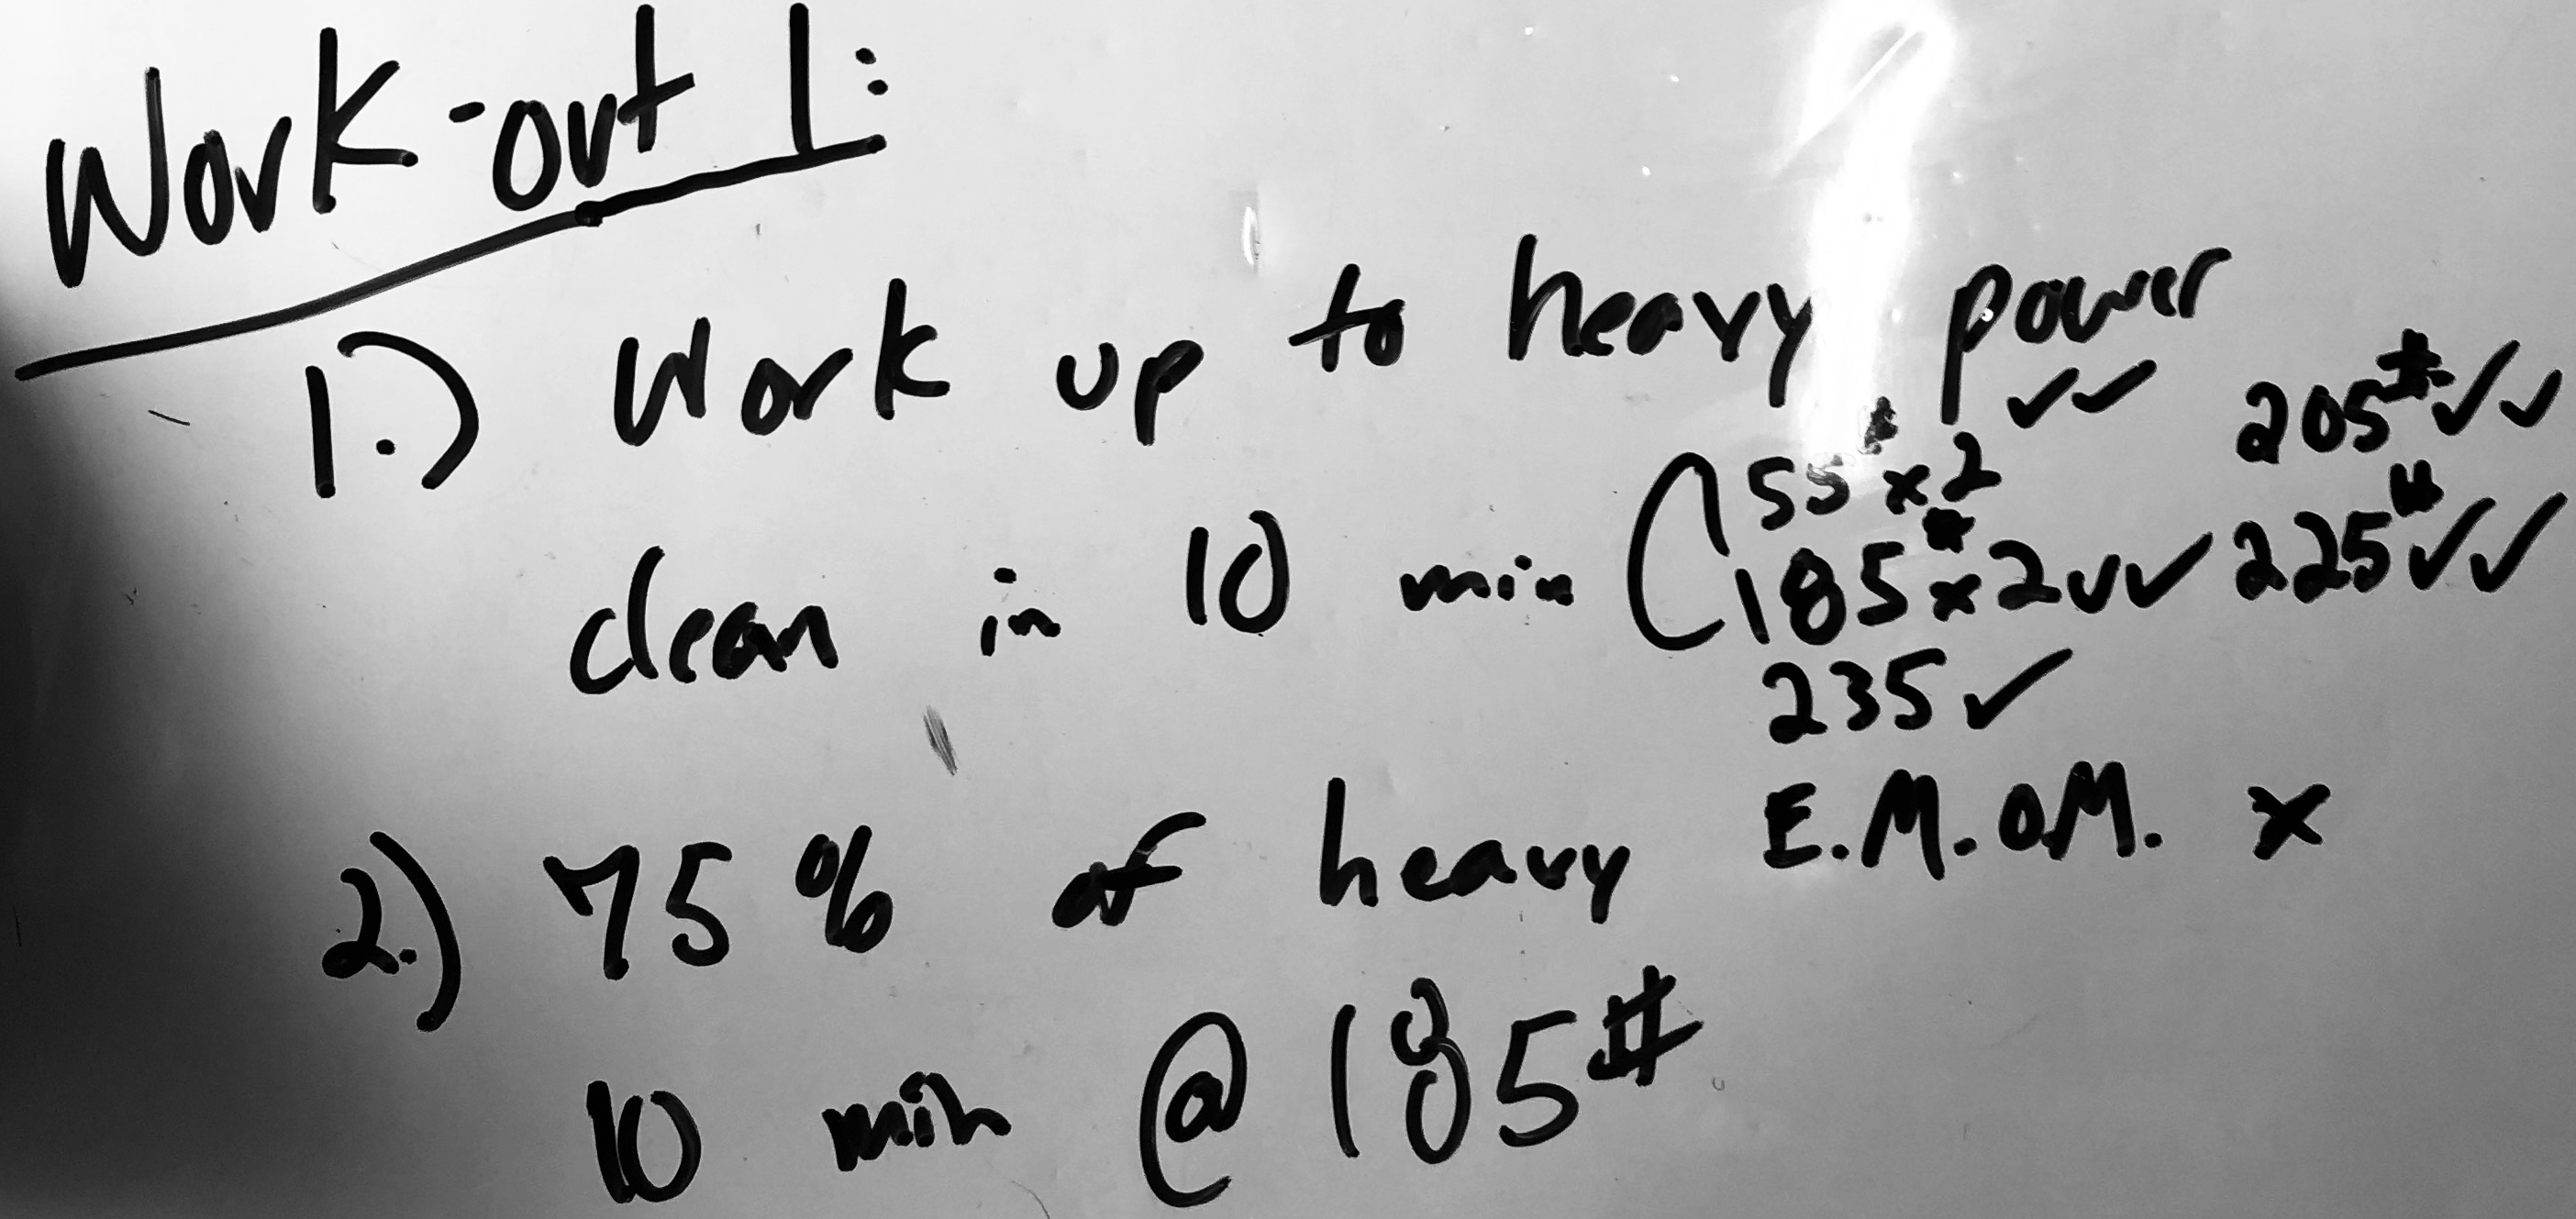 Work-out 1:
1.) Work up to heavy power
clean in 10 min (155# x 2 ✓✓ 205# ✓✓
185# x 2 ✓✓ 225# ✓✓
235 ✓
2.) 75% of heavy E.M.O.M. x
10 min @ 185#